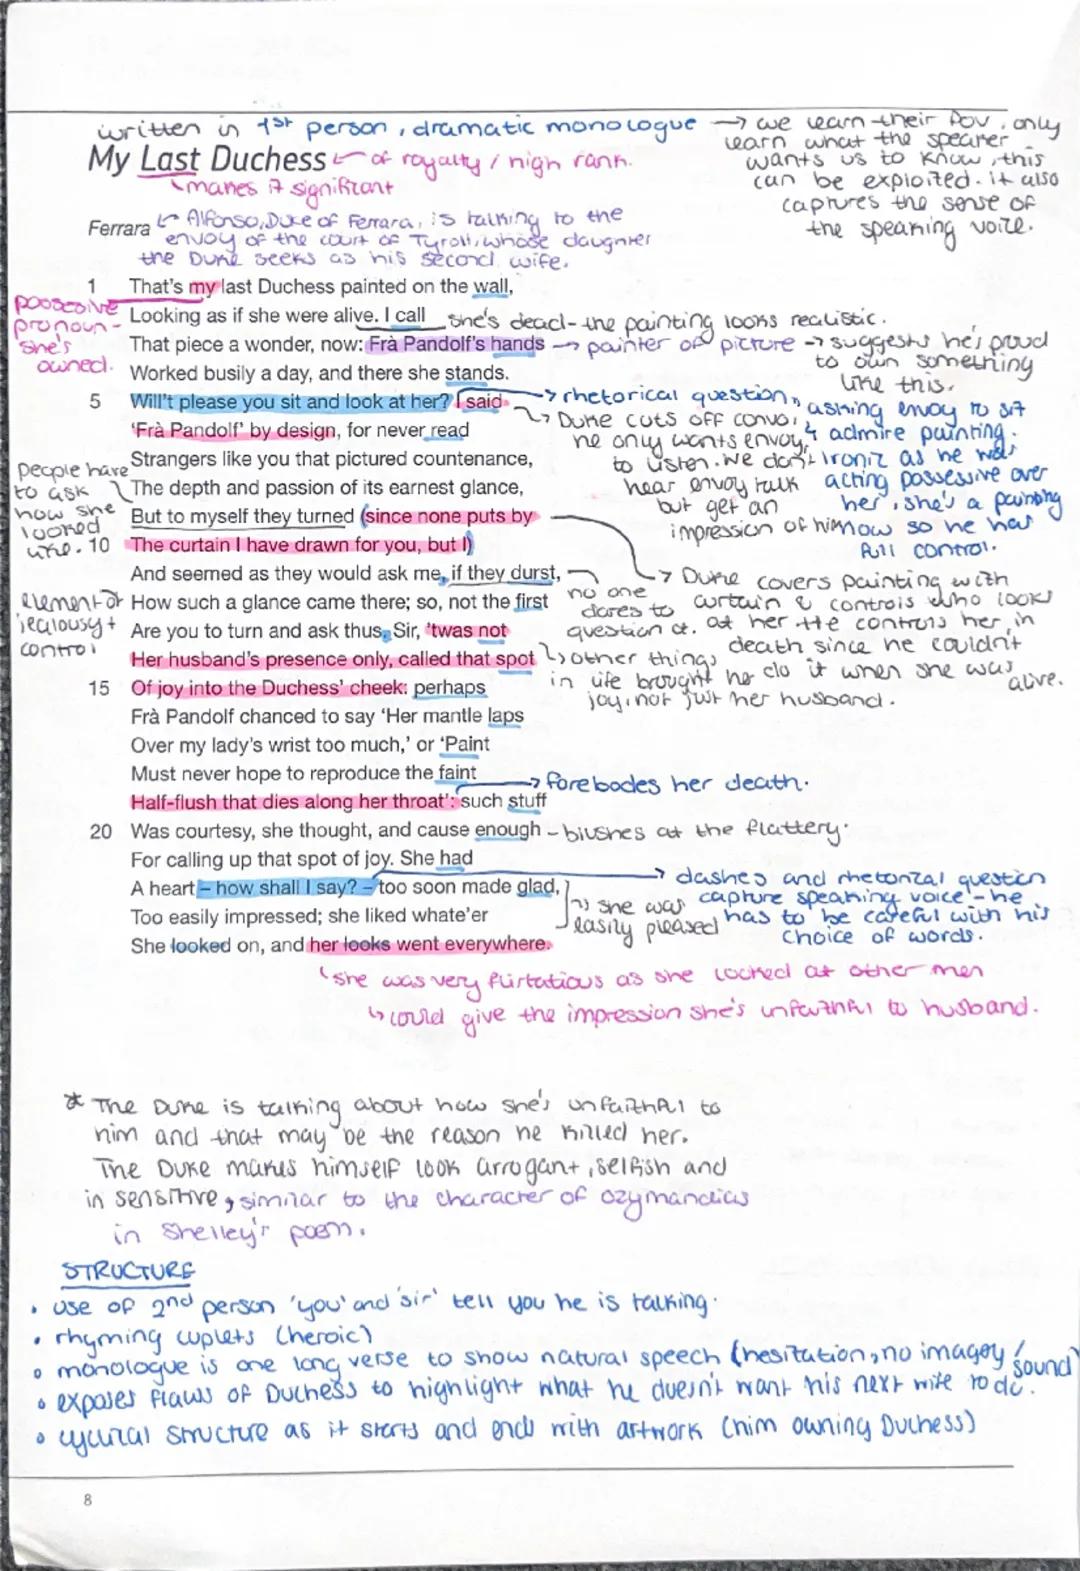 written in 1st person, dramatic monologue → we learn their POV, only
learn what the speaker
wants us to know, this
can be exploited. it also
captures the sense of
the speaking voice.
My Last Duchess ← of royalty / high rank.
makes it significant
Ferrara
Alfonso, Duke of Ferrara, is talking to the
envoy of the court of Tyroll, whose daughter
the Duke seeks as his second wife.
1 That's my last Duchess painted on the wall,
possesive
pronoun -
she's
owned.
Looking as if she were alive. I call
she's dead - the painting looks realistic.
That piece a wonder, now: Frà Pandolf's hands
→ painter of picture → suggests he's proud
to own something
like this.
Worked busily a day, and there she stands.
5 Will't please you sit and look at her? I said
→ rhetorical question, asking envoy to sit
& admire painting.
Ironic as he was
acting possessive over
her, she's a painting
now so he has
full control.
Duke cuts off convo,
he only wants envoy
to listen. We don't
hear envoy talk
but get an
impression of him
'Frà Pandolf' by design, for never read
Strangers like you that pictured countenance,
people have
to ask
how she
looked
like.
The depth and passion of its earnest glance,
But to myself they turned (since none puts by
10 The curtain I have drawn for you, but I)
→ Duke covers painting with
curtain & controls who looks
at her. He controls her in
death since he couldn't
do it when she was
alive.
And seemed as they would ask me, if they durst,
no one
dares to
question it.
element of
jealousy +
control
How such a glance came there; so, not the first
Are you to turn and ask thus. Sir, 'twas not
Her husband's presence only, called that spot
↳ other things
in life brought her
joy, not just her husband.
15 Of joy into the Duchess' cheek: perhaps
Frà Pandolf chanced to say 'Her mantle laps
Over my lady's wrist too much,' or 'Paint
Must never hope to reproduce the faint
→ forebodes her death.
Half-flush that dies along her throat': such stuff
20 Was courtesy, she thought, and cause enough
- blushes at the flattery.
For calling up that spot of joy. She had
A heart – how shall I say? – too soon made glad,
→ dashes and rhetorical question
capture speaking voice - he
has to be careful with his
choice of words.
Too easily impressed; she liked whate'er
she was
easily pleased
She looked on, and her looks went everywhere.
she was very flirtatious as she looked at other men
↳ could give the impression she's unfaithful to husband.
* The Duke is talking about how she's unfaithful to
him and that may be the reason he killed her.
The Duke makes himself look arrogant, selfish and
insensitive, similar to the character of ozymandias
in Shelley's poem.
STRUCTURE
• use of 2nd person 'you' and 'sir' tell you he is talking.
• rhyming cuplets (heroic)
• monologue is one long verse to show natural speech (hesitation, no imagey / sound)
• exposes flaws of Duchess to highlight what he doesn't want his next wife to do.
• cyclical structure as it starts and ends with artwork (him owning Duchess)
8